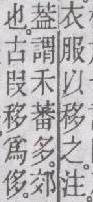 衣服以移之。注。
葢謂禾蕃多。郊
也。古叚移爲侈。